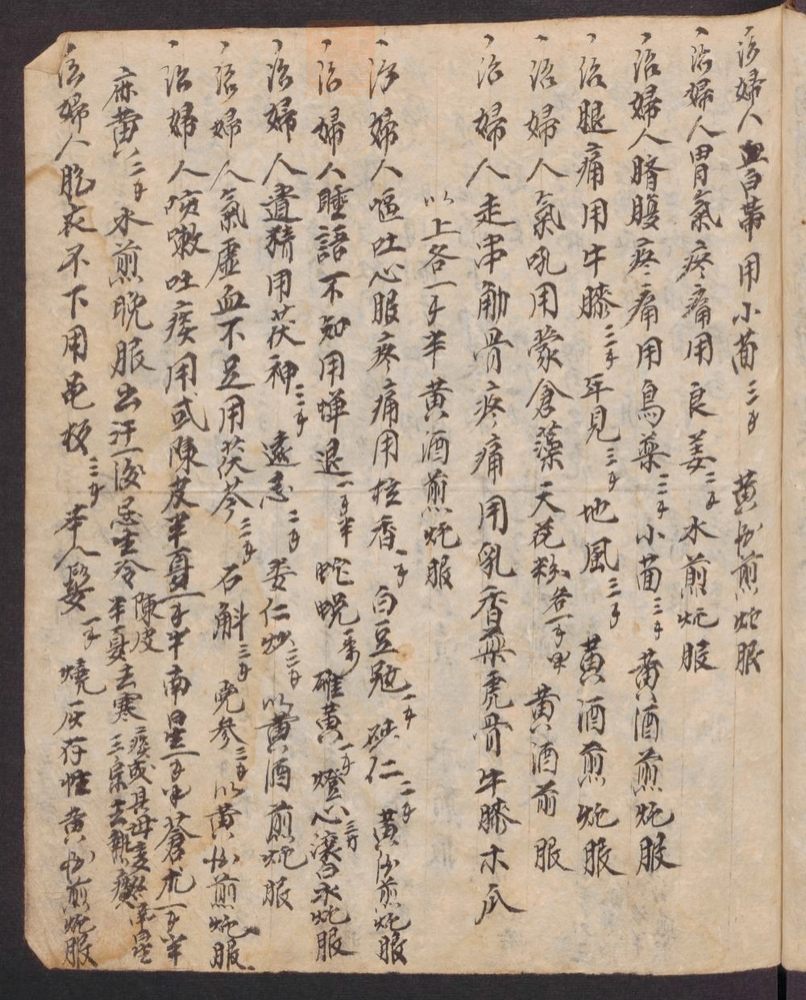 治婦人血白帶用小茴三个 黃酒煎炖服
治婦人胃氣疼痛用良姜二个水煎炖服
治婦人臍腹疼痛用烏藥二个小茴三个黃酒煎炖服
治腿痛用牛膝二个年見三个地風三个黃酒煎炖服
治婦人氣吼用蒙倉藻天花粉各一个半黃酒前服
治婦人走串觔骨疼痛用乳香藥虎骨牛膝木瓜
以上各一个半黃酒煎炖服
治婦人嘔吐心服疼痛用 香一个白豆 一个砂仁二个黃酒煎炖服
治婦人睡語不知用蟬退一个半 蛇蛻一条 雄黃一个燈心三分滾白水炖服
治婦人遺精用茯神三个遠志二个 仁炒三个以黃酒煎炖服
治婦人氣虛血不足用茯苓二个石斛三个党參三个以黃酒煎炖服
治婦人咳嗽吐痰用或陳皮半夏一个半南星一个半蒼朮一个半
麻黄二个水煎晚服出汗一後忌生冷陳皮半夏去寒痰或具母
治婦人胞衣不下用龟板三个本人髮一个燒灰存性黃酒煎炖服